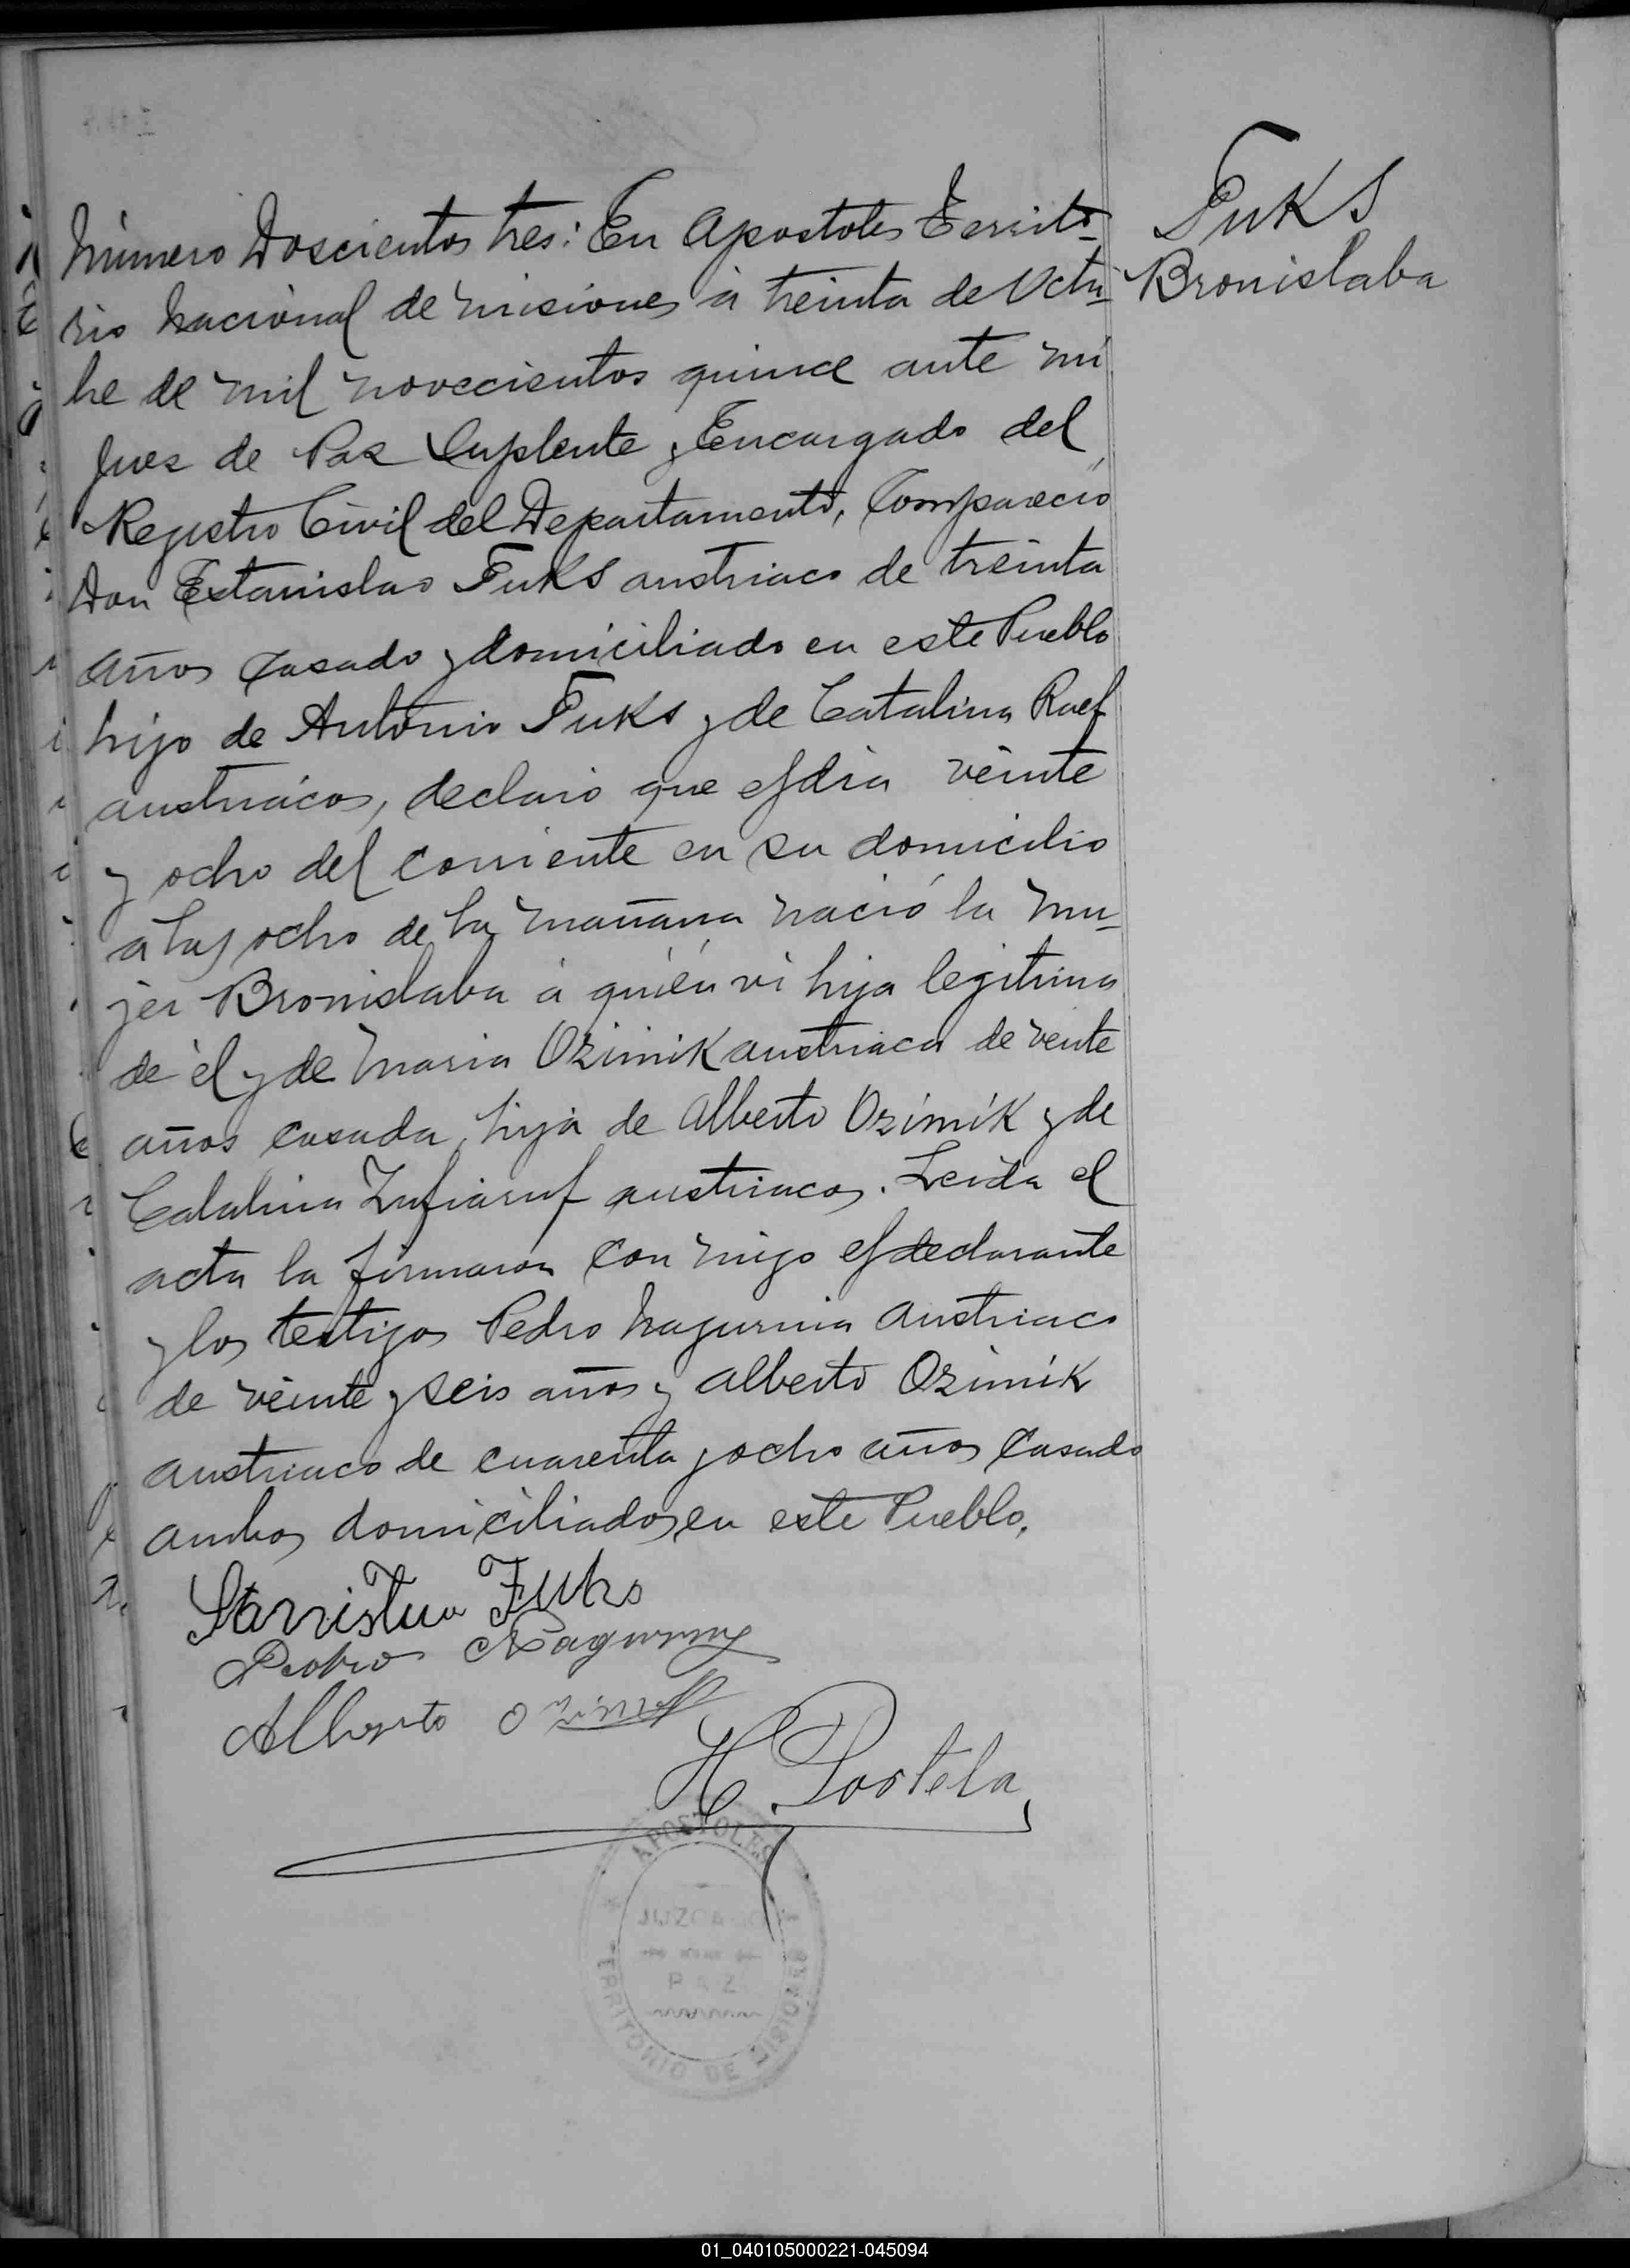 Fuks
Bronislaba
Número Doscientos tres: En Apostoles Territo-
rio Nacional de Misiones á treinta de Octu-
bre de mil novecientos quince ante mi
Juez de Paz Suplente y Encargado del
Registro Civil del Departamento, Compareció
Don Estanislao Fuks austriaco de treinta
años casado y domiciliado en este Pueblo
hijo de Antonio Fuks y de Catalina Ruef
austriácos, declaró que el dia veinte
y ocho del corriente en su domicilio
á las ocho de la mañana nació la mu-
jer Bronislaba á quién vi hija legitima
de él y de Maria Ozimik austriaca de veinte
años casada, hija de Alberto Ozimik y de
Catalina austriacos. Leida el
acta la firmaron con migo el declarante
y los testigos Pedro Nagurnia austriaco
de veinte y seis años y Alberto Ozimik
austriaco de cuarenta y ocho años casado
ambos domiciliados en este Pueblo.
Fuks
Pedro Nagurny
Alberto
H. Portela
APOSTOLES
JUZGADO
PAZ
TERRITORIO DE MISIONES
01_040105000221-045094